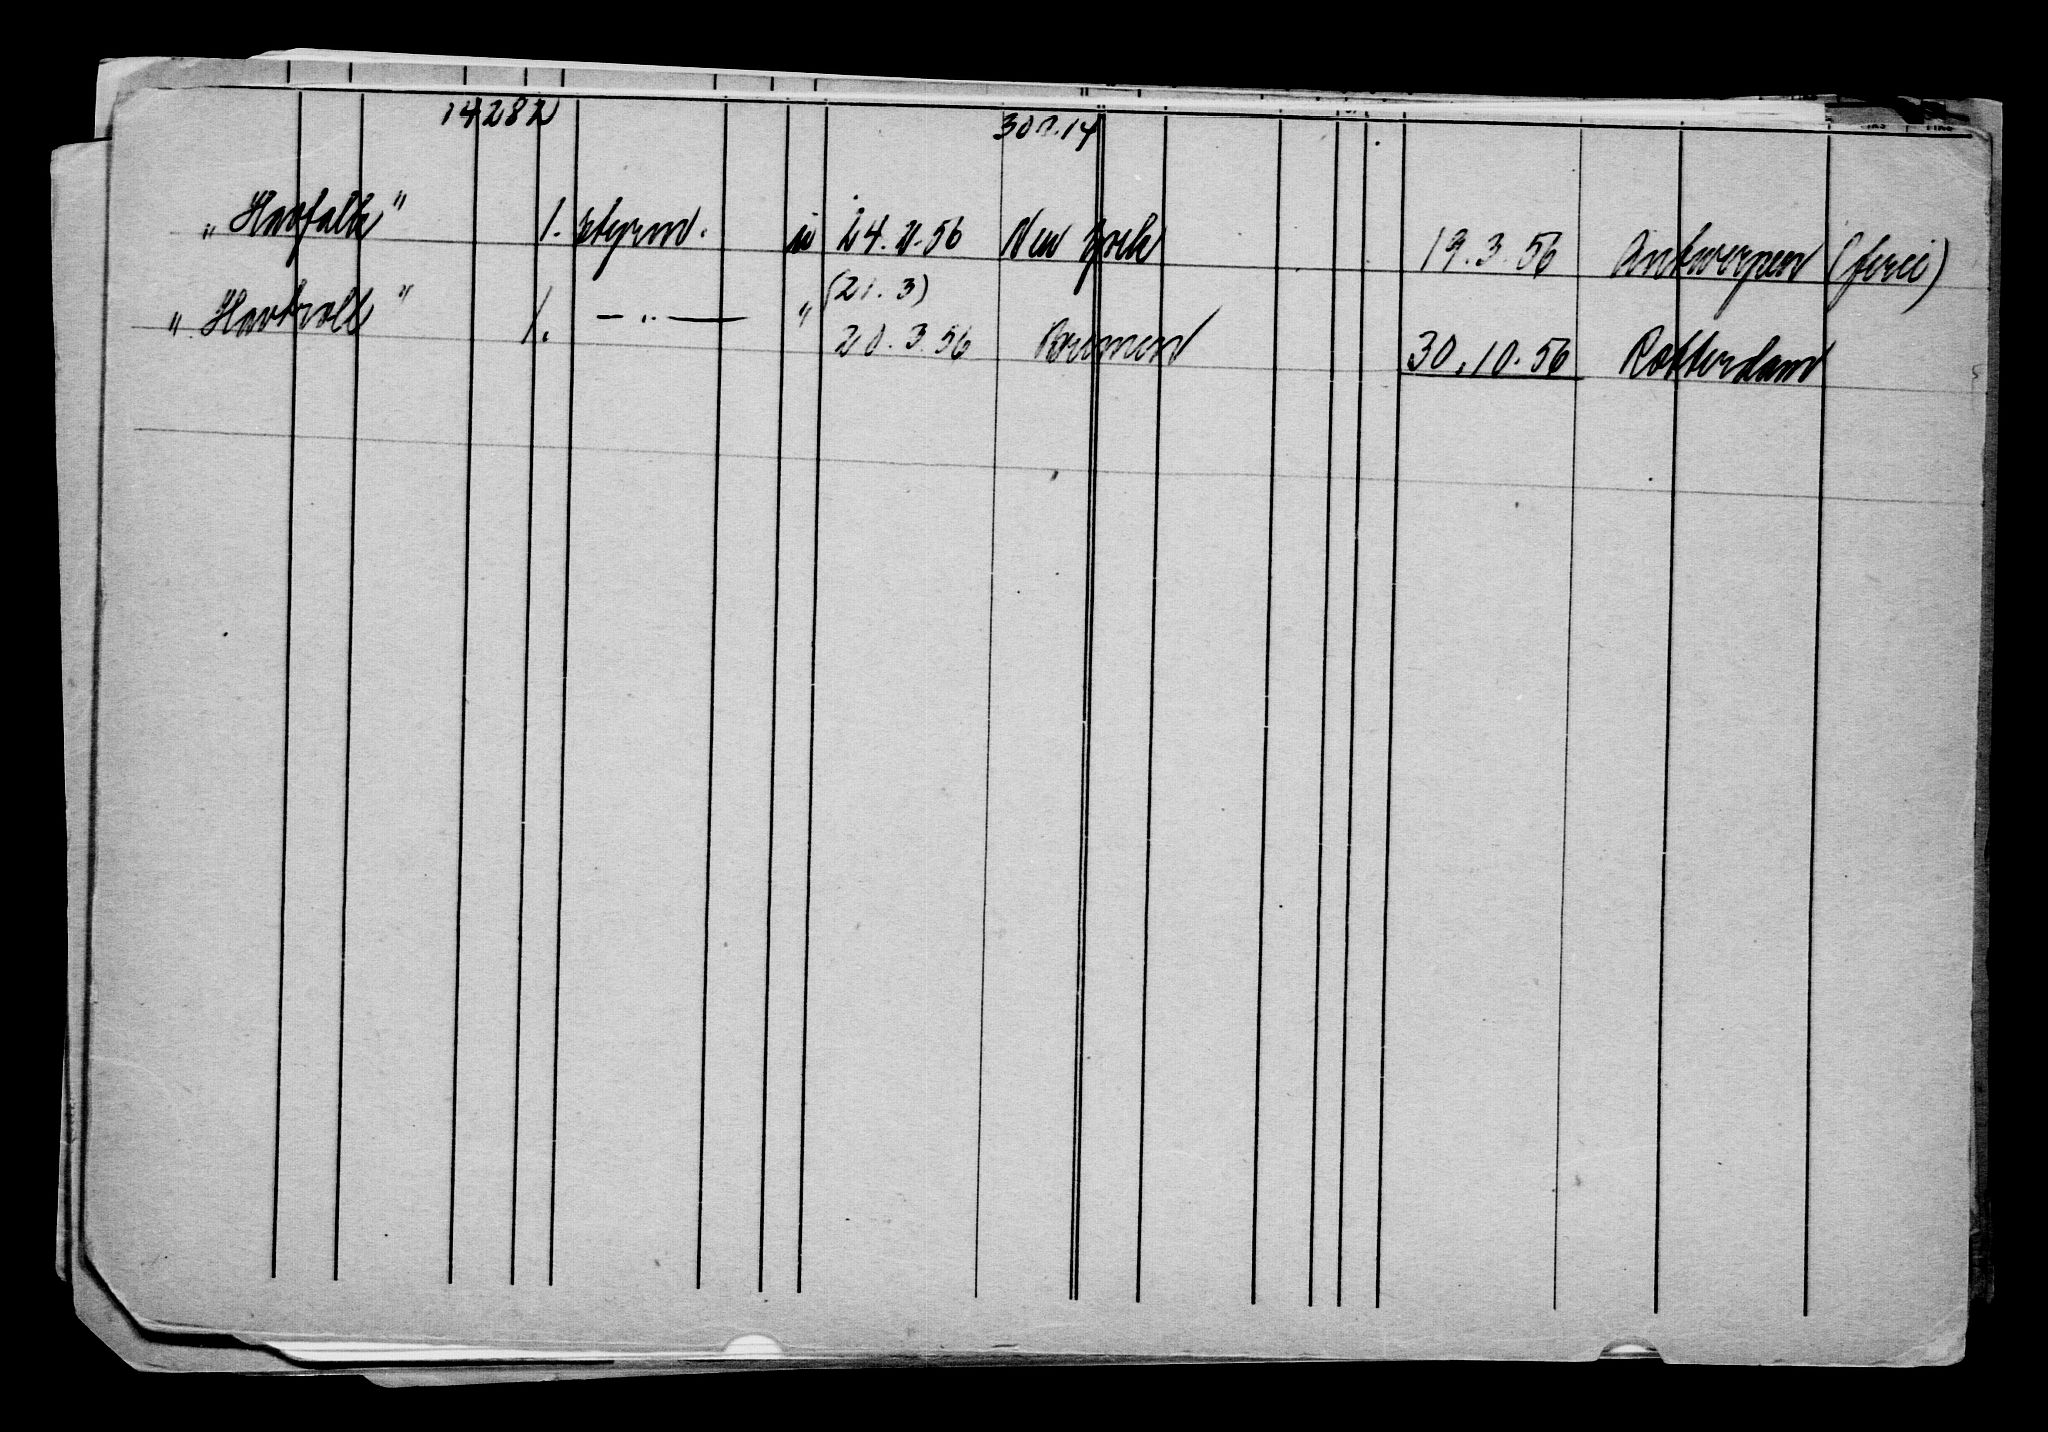 14282 300.14
„Havfalk" 1. styrm. 24.2.56 New York 19.3.56 Antwerpen (ferie)
(21.3)
„Havtroll" 1. — " — " 20.3.56 Bremen 30.10.56 Rotterdam